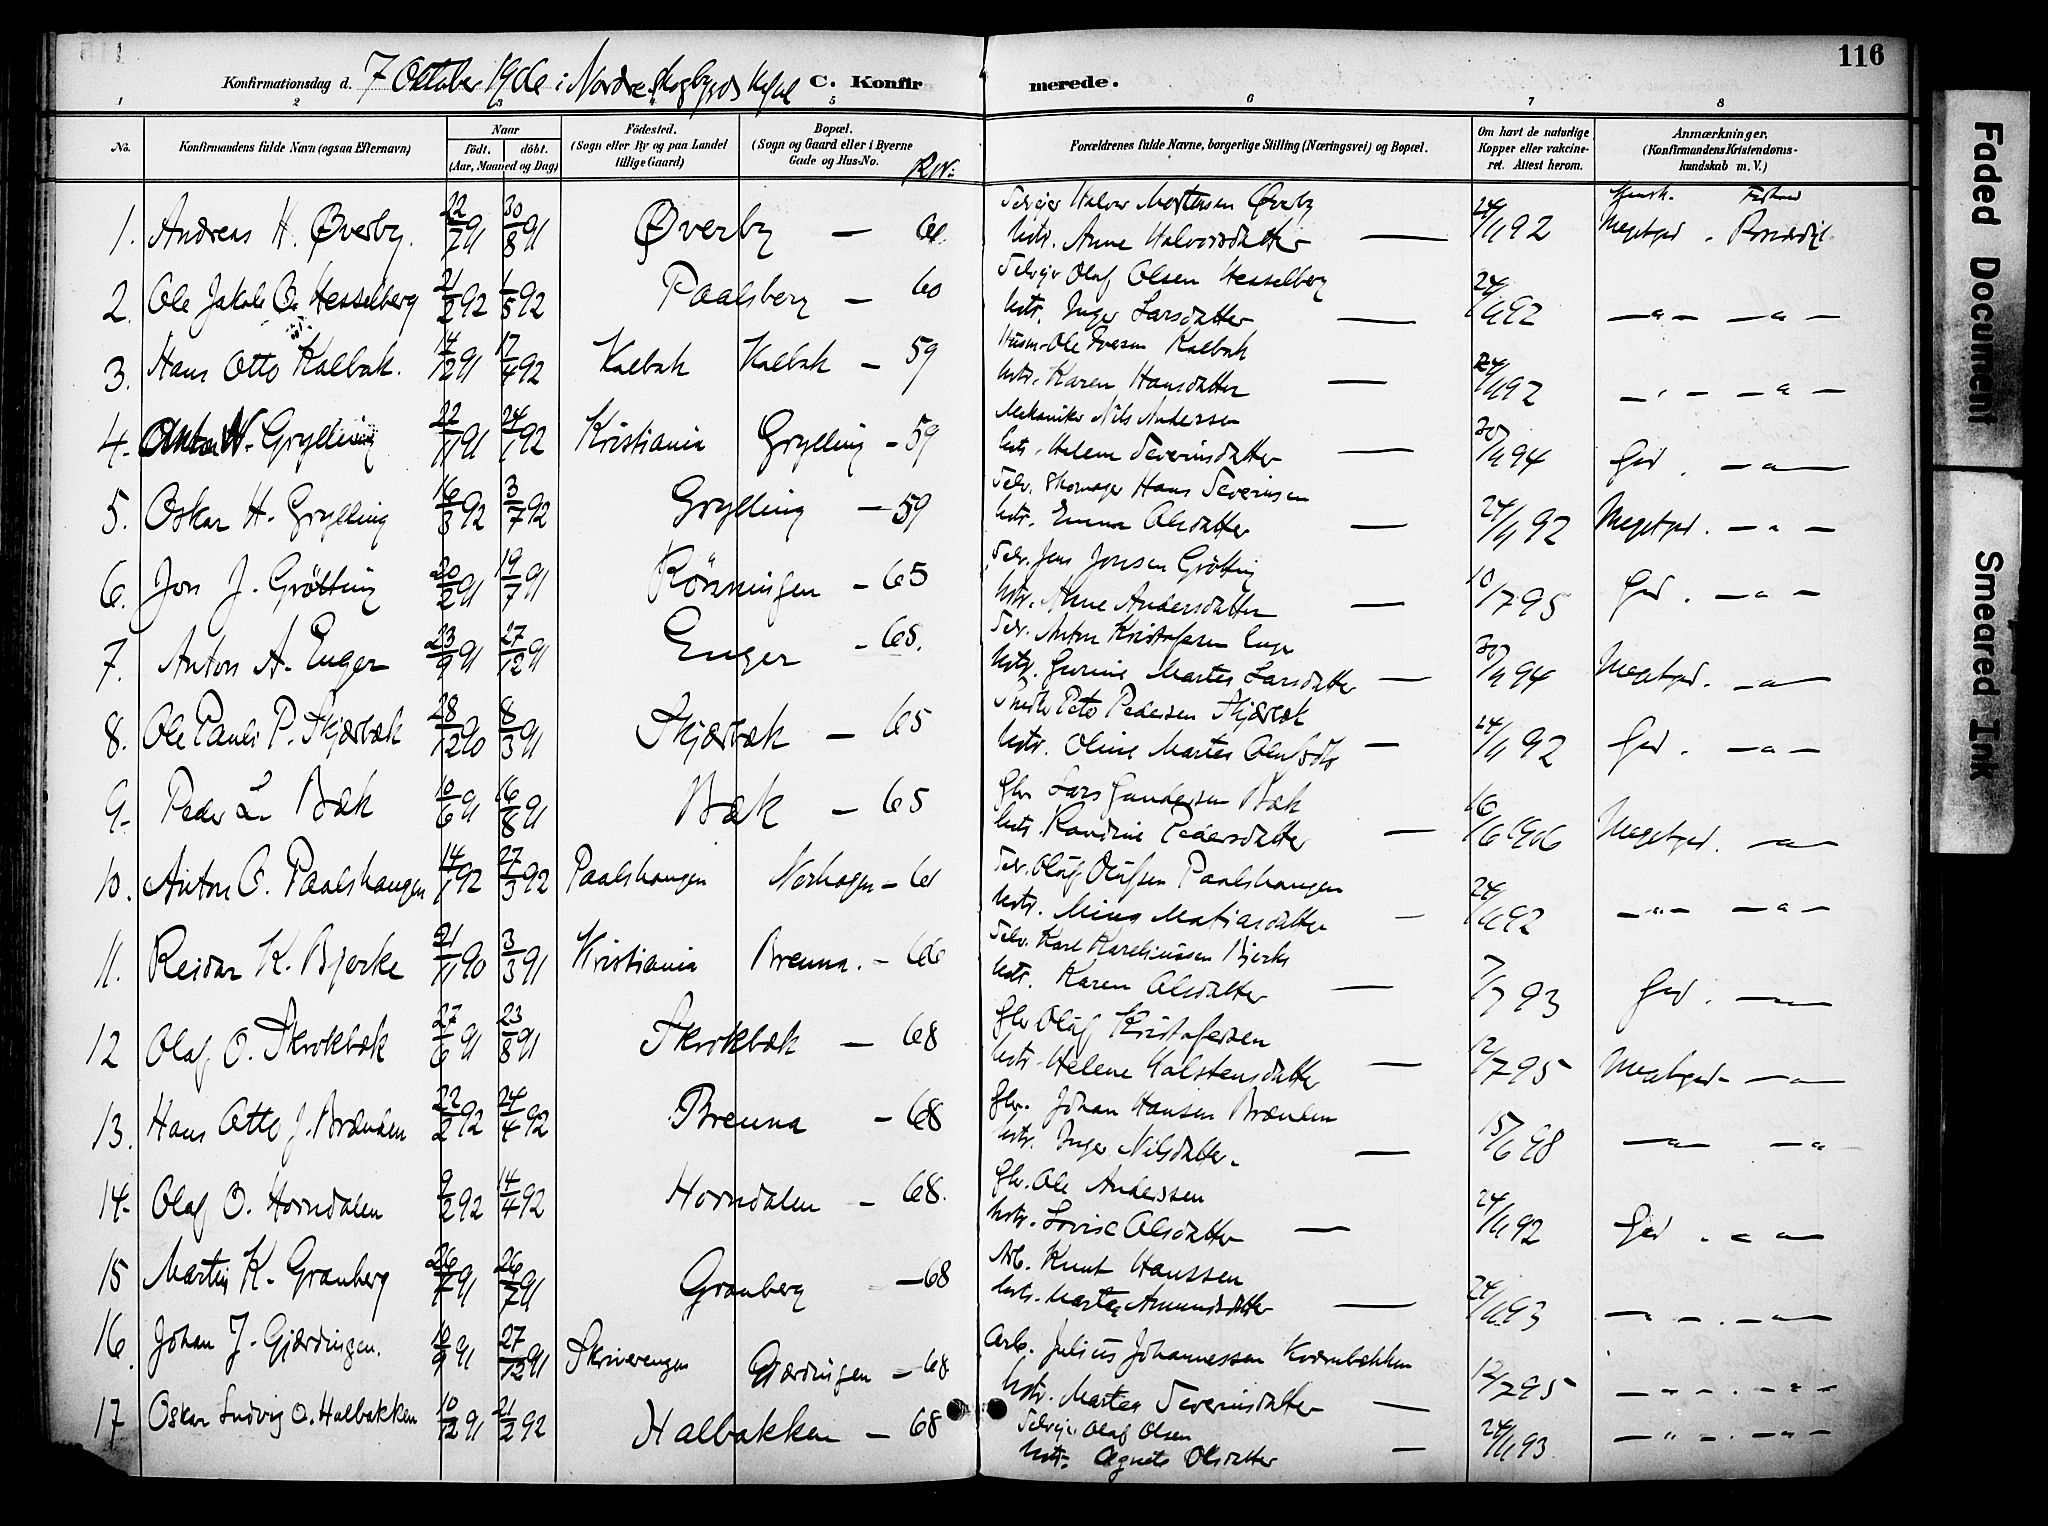 116
Konfirmationsdag d. 7 Oktober 1906 i Nordre Skogbygds Kapel C. Konfirmerede.
1 2 3 5 6 7 8
No. Konfirmandens fulde Navn (ogsaa Efternavn) Naar födt. döbt. (Aar, Maaned og Dag) Födested. (Sogn eller By og paa Landet tillige Gaard) Bopæl. (Sogn og Gaard eller i Byerne Gade og Hus-No. Forældrenes fulde Navne, borgerlige Stilling (Næringsvei) og Bopæl. Om havt de naturlige Kopper eller vakcineret. Attest herom. Anmærkninger. (Konfirmandens Kristendomskundskab m. V.)
1. Andreas H. Øverby. 22/7 91 30/8 91 Øverby — 61. Selveier Halvor Mortensen Øverby
Hstr. Anne Halvorsdatter — 24/6 92 Megetgod.
2. Ole Jakob O. Hesselberg 21/2 92 1/5 92 Paalsberg — 60 Selveier Olaf Olsen Hesselberg
Hstr. Inger Larsdatter — 24/6 92 — " — — " —
3. Hans Otto Kalbak. 4/12 91 17/4 92 Kalbak Kalbak — 59 Husm. Ole Iversen Kalbak
Hstr. Karen Hansdatter — 24/6 92 — " — — " —
4. Anton N. Grylling 22/11 91 24/1 92 Kristiania Grylling — 59 Mekaniker Nils Andersen
Hstr. Helene Severinsdatter — 30/6 94 God. — " —
5. Oskar H. Grylling 16/3 92 3/7 92 Grylling — 59 Selv. Skomager Hans Severinsen
Hstr. Emma Olsdatter — 24/6 92 Megetgod. — " —
6. Jon J. Grötting 20/2 91 19/7 91 Rönningen — 65 Selv. Jens Jonsen Grötting
Hstr. Anne Andersdatter — 10/7 95 God. — " —
7. Anton A. Enger 23/9 91 27/12 91 Enger — 65. Selv. Anton Kristofersen Enger
Hstr. Gurine Martea Larsdatter — 30/6 94 Megetgod. — " —
8. Ole Pauli P. Skjærbæk 28/12 90 8/3 91 Skjærbæk — 65 Pedersen Skjærbæk
Hstr. Oline Martea — 24/6 92 God. — " —
9. Peder L. Bæk 10/6 91 16/8 91 Bæk — 65 Gbr. Lars Gundersen Bæk
Hstr. Randine Pedersdatter — 16/6 1906 Megetgod. — " —
10. Anton O. Paalshaugen 14/1 92 27/3 92 Paalshaugen Norhagen — 61 Selv. Oluf Olufsen Paalshaugen
Hstr. Mina Matiasdatter — 24/6 92 — " — — " —
11. Reidar K. Bjerke 21/11 90 3/3 91 Kristiania Brenna. — 66 Selv. Karl Kareliussen Bjerke
Hstr. Karen Olsdatter — 7/7 93 God. — " —
12 Olaf O. Skrokbæk 27/6 91 23/8 91 Skrokbæk — 68 Gbr. Oluf Kristofersen
Hstr. Helene Halstensdatter — 12/7 95 Megetgod — " —
13. Hans Otto J. Brænden 22/2 92 24/4 92 Brenna — 68 Gbr. Johan Hansen Brænden
Hstr. Inger Nilsdatter. — 15/6 98 — " — — "
14. Olaf O. Horndalen 9/2 92 14/4 92 Horndalen — 68. Gbr. Ole Anderssen
Hstr. Lovise Olsdatter — 24/6 92 God. — " —
15 Martin K. Granberg 26/4 91 26/7 91 Granberg — 68 Arb. Knut Hanssen
Hstr. Martea Amundsdatter — 24/6 93 — " — . — " —
16. Johan J. Gjærdingen. 10/9 91 27/12 91 Skriverengen Gjærdingen — 68 Arb. Julius Johannessen Kværnbækken
Hstr. Martea Severinsdatter — 12/7 95 — " — . — " —
17 Oskar Ludvig O. Halbakken 10/12 91 21/2 92 Halbakken — 68 Selveier Olaf Olsen
Hstr. Agnete Olsdatter — 24/6 93 — " — . — " —
Faded Document
Smeared Ink